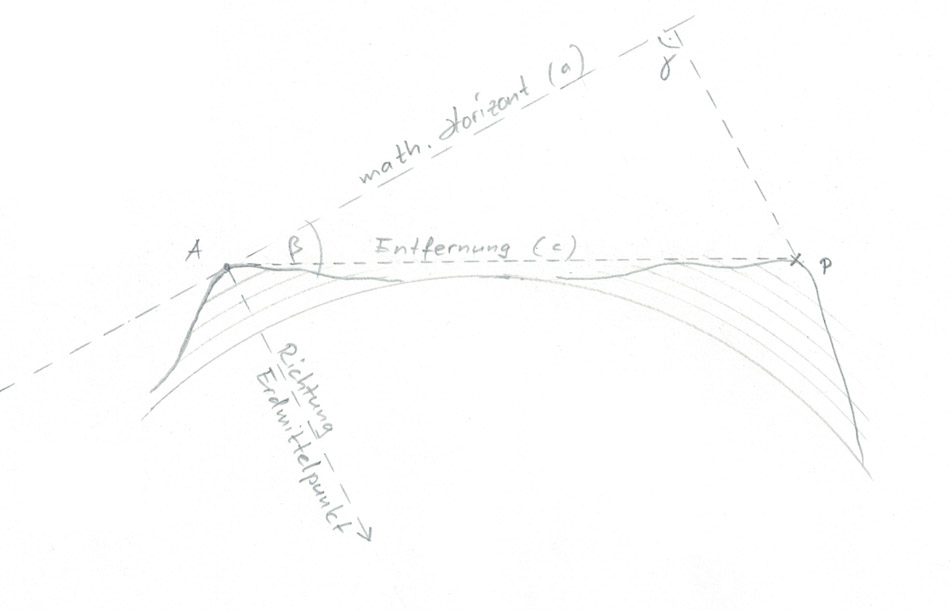 γ
math. Horizont (a)
A
β
Entfernung (c)
P
Richtung
Erdmittelpunkt